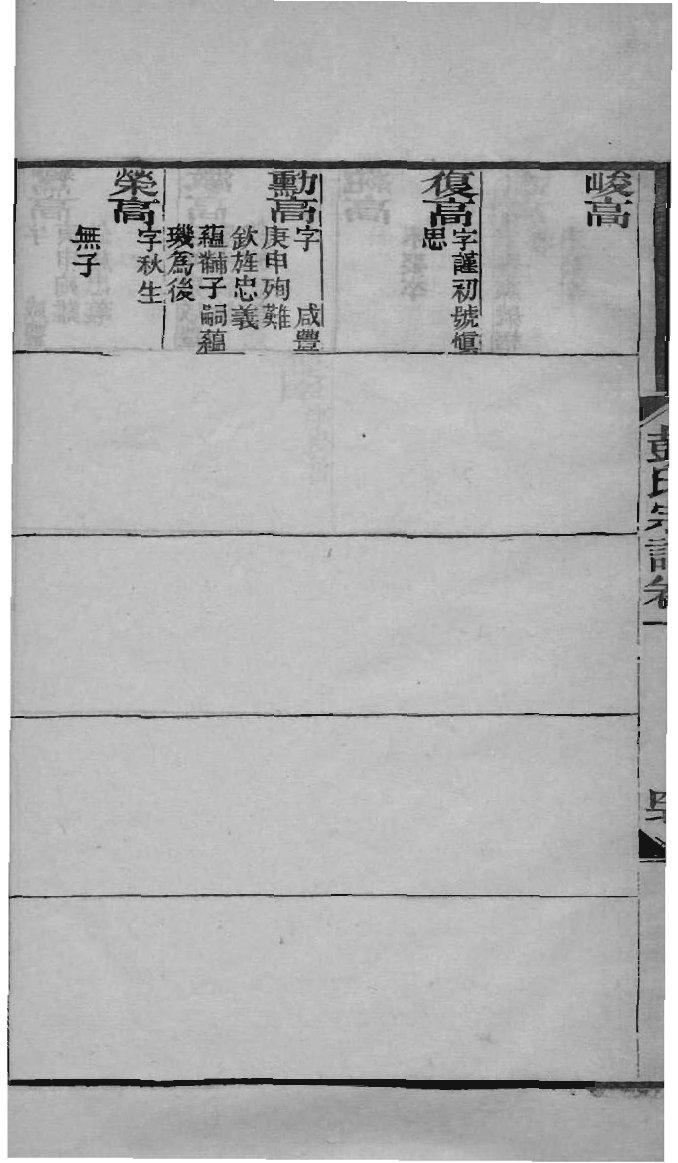 峻高
復高
字謹初號愼
思
勳高
字　咸豐
庚申殉難
欽旌忠義
蘊黼子嗣蘊
璣爲後
榮高
字秋生
無子
彭氏宗譜卷一